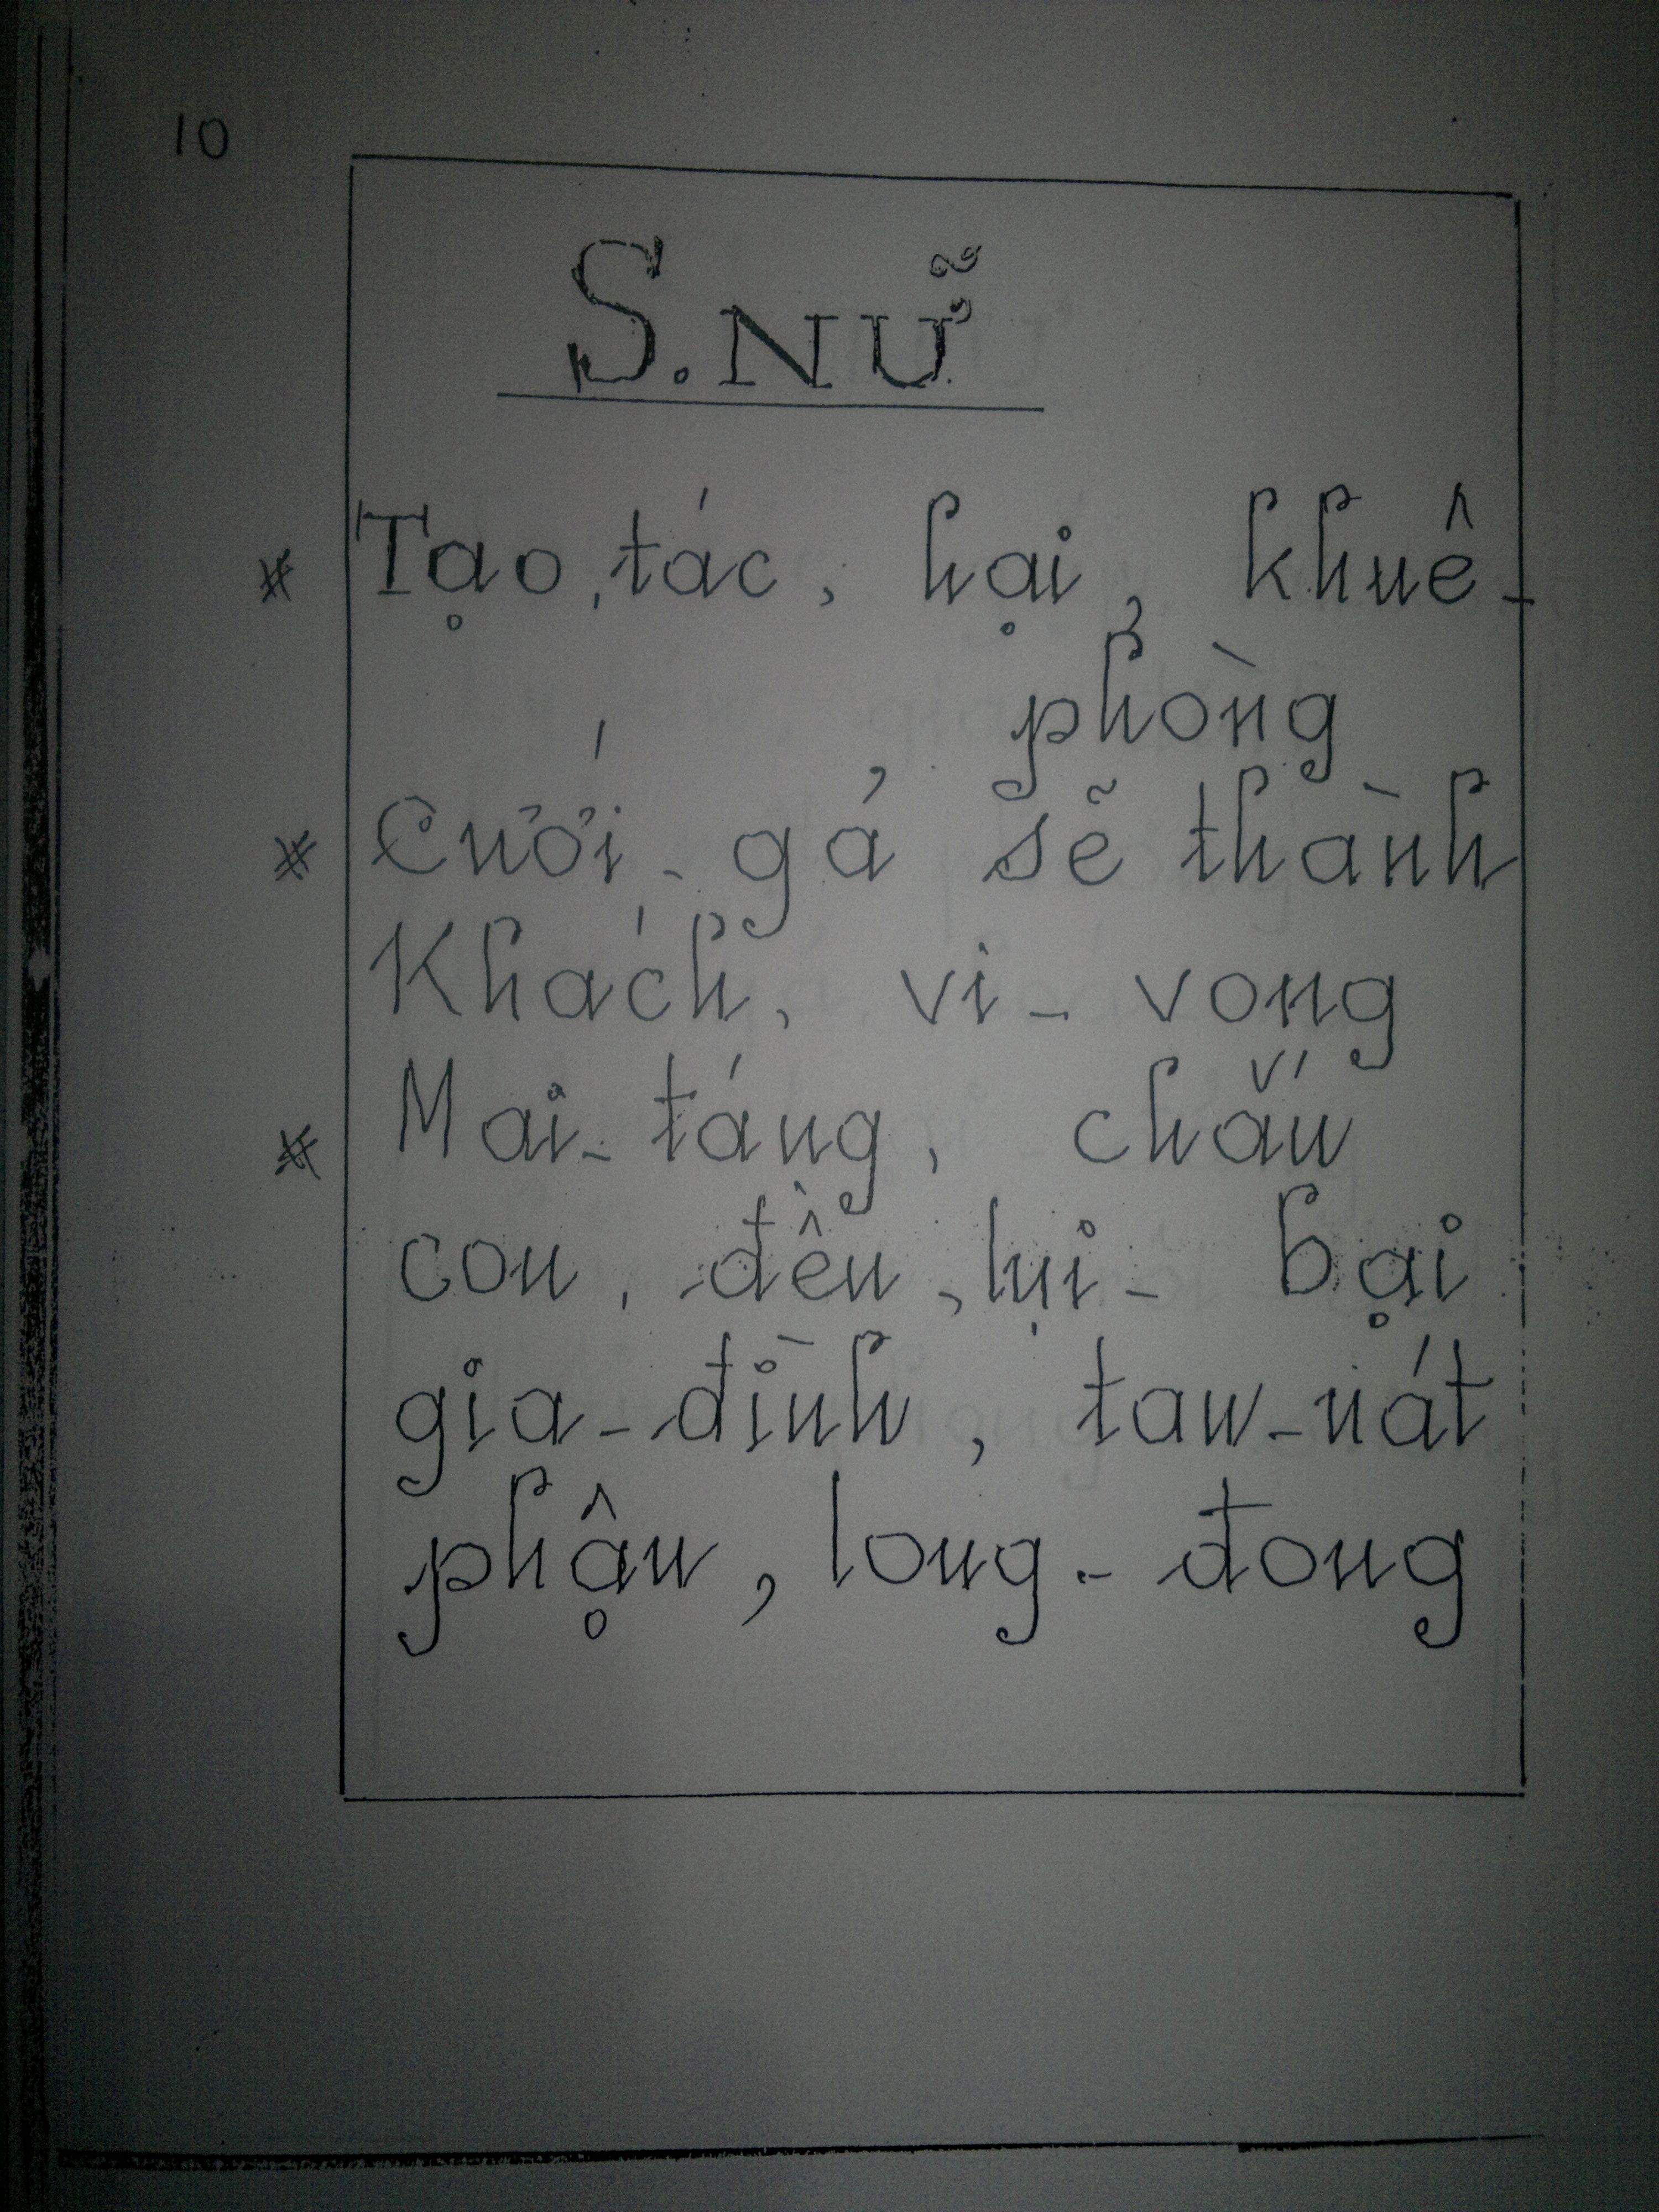 10
S. NỮ
* Tạo, tác, hại, khuê-
phòng
* Cưới - gả sẽ thành
Khách, vi - vong
* Mai - táng, chắn
con, đên, lụi - bại
gia - đình, tan - nát
phận, long - đong